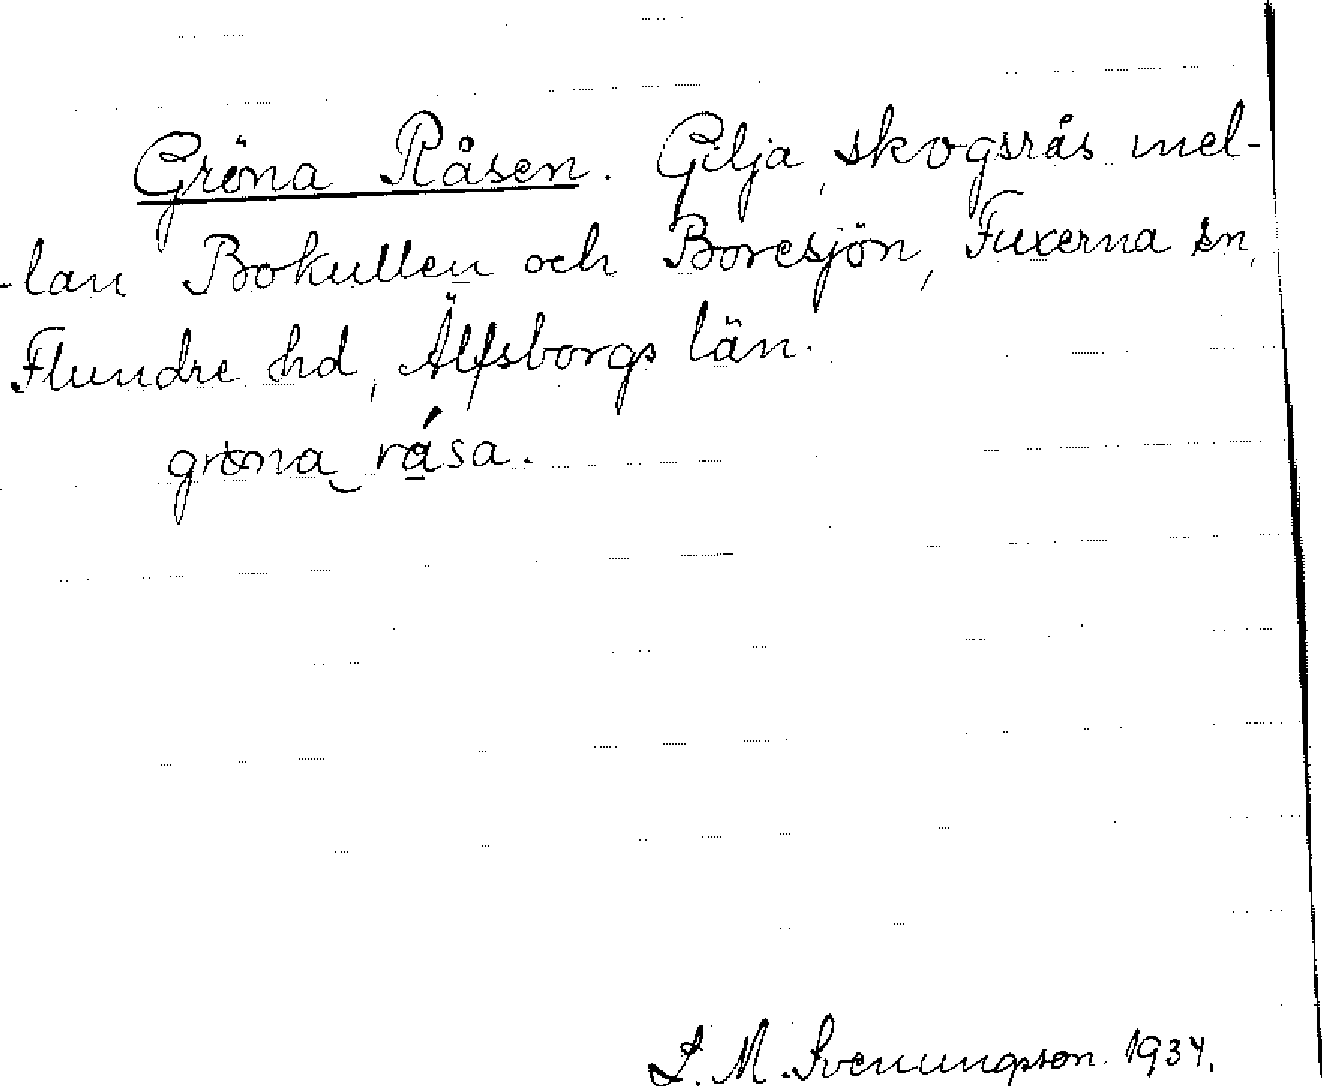 Gröna Råsen. Gilja, skogsrås mel-
-lan Bokullen och Boresjön, Fuxerna sn,
Flundre hd, Älfsborgs län.
gröna rása.
S. M. Svenungsson. 1934.